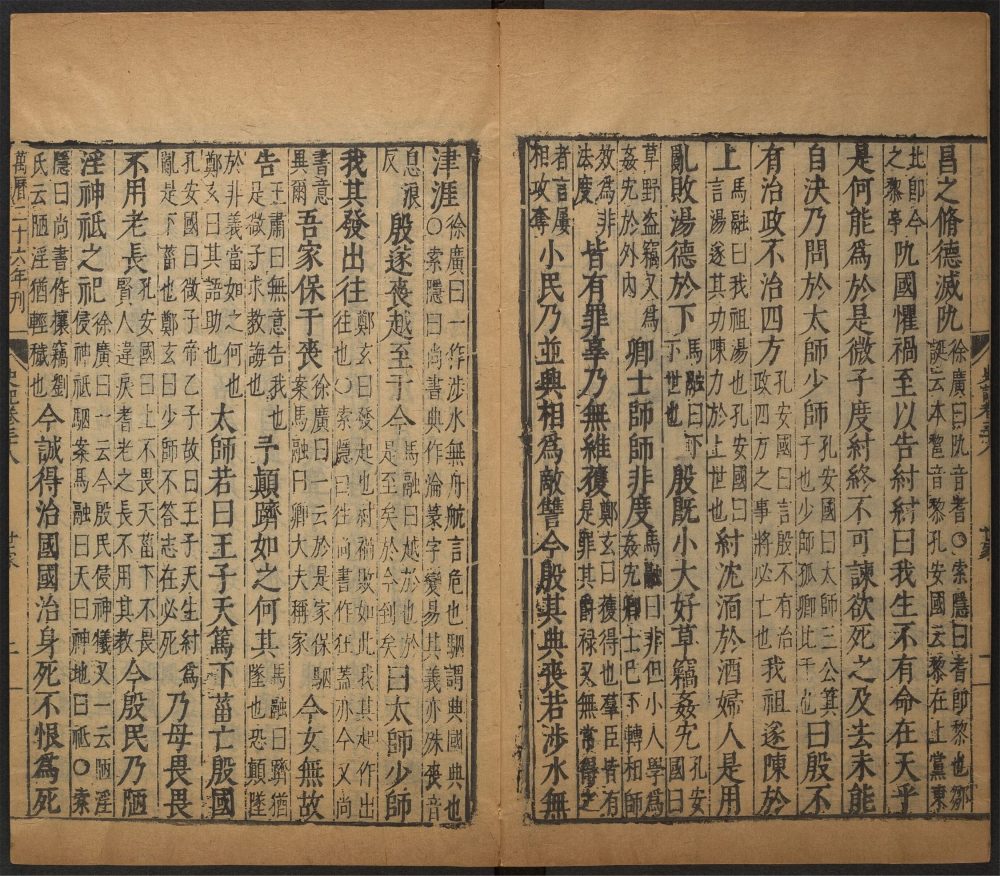 昌之脩德滅阢徐廣曰阢音耆○索隱曰耆即黎也鄒誕云本𥠖音黎孔安國云黎在上黨東
北即今之黎亭阢國懼禍至以告紂紂曰我生不有命在天乎
是何能為於是微子度紂終不可諫欲死之及去未能
自決乃問於太師少師孔安國曰太師三公箕子也少師孤卿比干也曰殷不
有治政不治四方孔安國曰言殷不有治政四方之事將必亡也我祖遂陳於
上馬融曰我祖湯也孔安國曰言湯遂其功陳力於上世也紂沈湎於酒婦人是用
亂敗湯德於下馬融曰下下世也殷既小大好草竊姦宄孔安國曰
草野盜竊又為姦宄於外內卿士師師非度馬融曰非但小人學為姦宄卿士已下轉相師
效為非法度皆有罪辜乃無維獲鄭玄曰獲得也羣臣皆有是罪其爵祿又無常得之
者言屢相攻奪小民乃並興相為敵讎今殷其典喪若涉水無
津涯徐廣曰一作涉水無舟航言危也駰謂典國典也○索隱曰尚書典作淪篆字變易其義亦殊喪音
息浪反殷遂喪越至于今馬融曰越於也於是至矣於今到矣曰太師少師
我其發出往鄭玄曰發起也紂禍敗如此我其起作出往也○索隱曰往尚書作狂蓋亦今又尚
書意異爾吾家保于喪徐廣曰一云於是家保駰案馬融曰卿大夫稱家今女無故
告王肅曰無意告我也是微子求教誨也予顛躋如之何其馬融曰躋猶墜也恐顛墜
於非義當如之何也鄭玄曰其語助也太師若曰王子天篤下菑亡殷國
孔安國曰微子帝乙子故曰王子天生紂為亂是下菑也鄭玄曰少師不答志在必死乃毋畏畏
不用老長孔安國曰上不畏天菑下不畏賢人違戾耆老之長不用其教今殷民乃陋
淫神祇之祀徐廣曰一云今殷民侵神犧又一云陋淫侵神祇駰案馬融曰天曰神地曰祇○索
隱曰尚書作攘竊劉氏云陋淫猶輕穢也今誠得治國國治身死不恨為死
萬曆二十六年刊